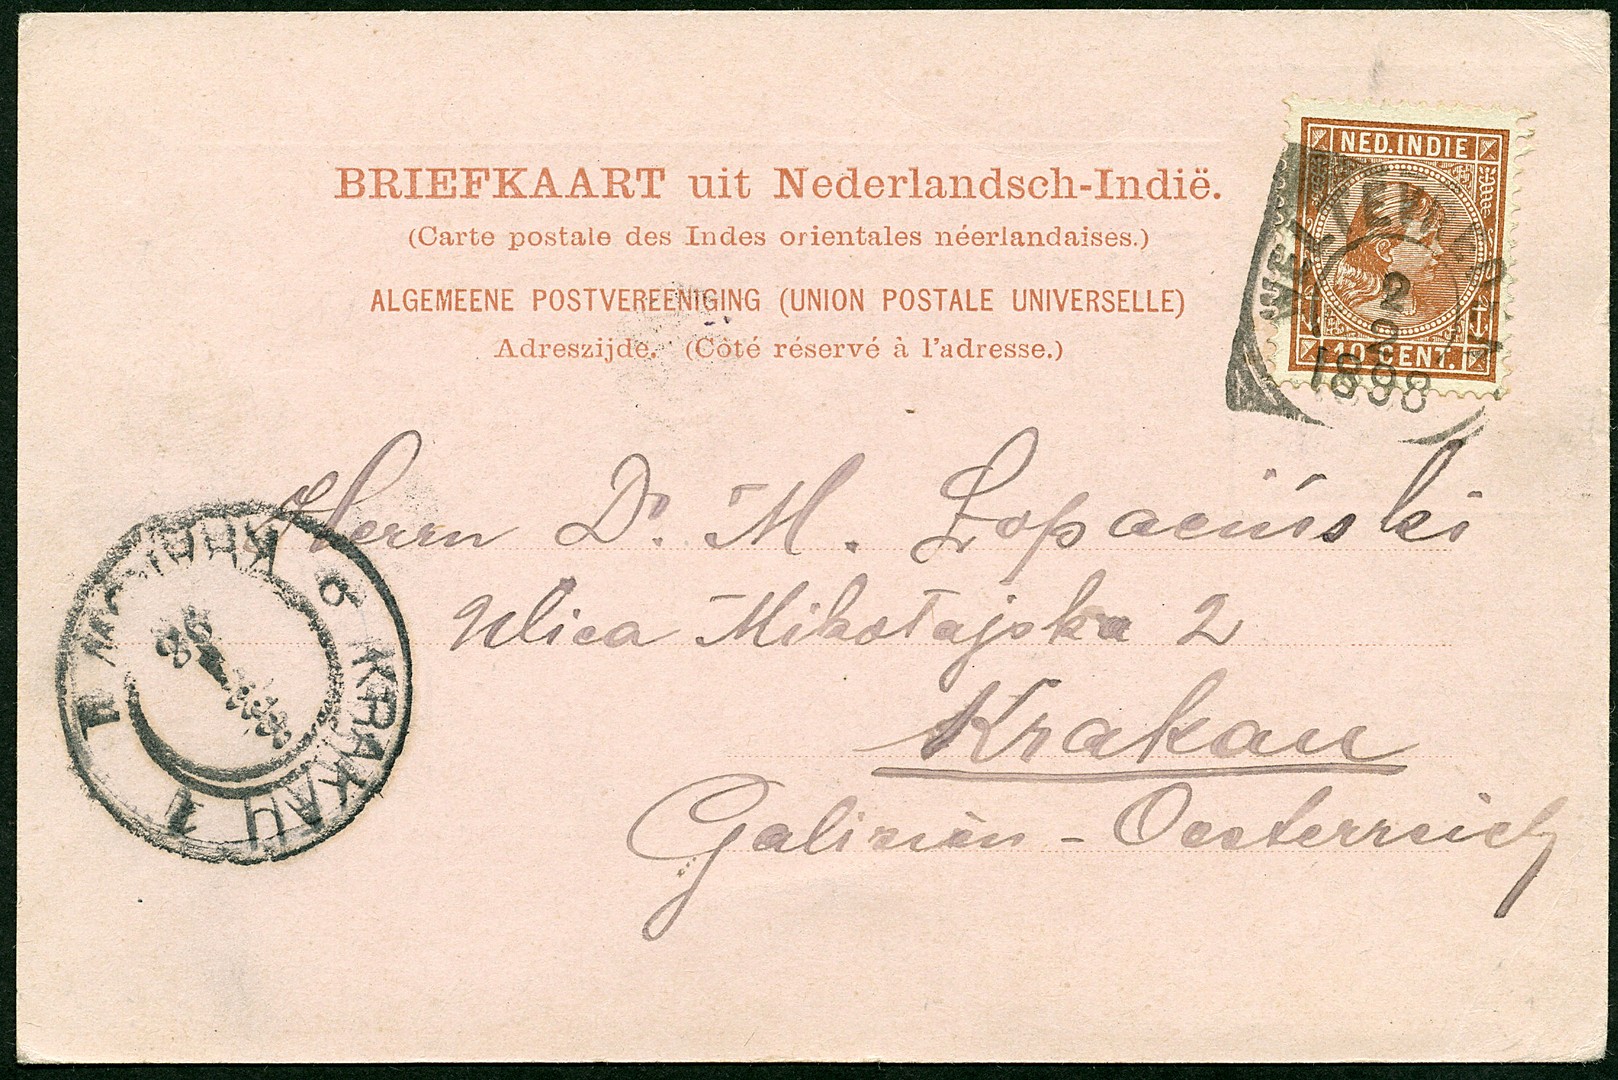 BRIEFKAART uit Nederlandsch-Indië.
(Carte postale des Indes orientales néerlandaises.)
ALGEMEENE POSTVEREENIGING (UNION POSTALE UNIVERSELLE)
Adreszijde. (Côté réservé à l'adresse.)
NED. INDIE
10 CENT.
WELTEVREDEN
2
2
1898
Herrn Dr. M. Łopaciński
Ulica Mikołajska 2
Krakau
Galizien - Oesterreich
KRAKÓW 1
6 KRAKAU 1
98